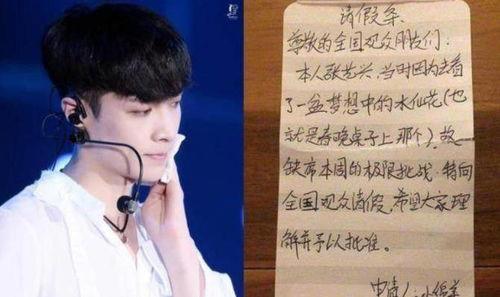 请假条
尊敬的全国观众朋友们:
本人张艺兴,当时因为去看
了一盆梦想中的水仙花(也
就是春晚桌子上那个),故
缺席本周的极限挑战,特向
全国观众请假,希望大家理
解并予以批准。
申请人:小绵羊